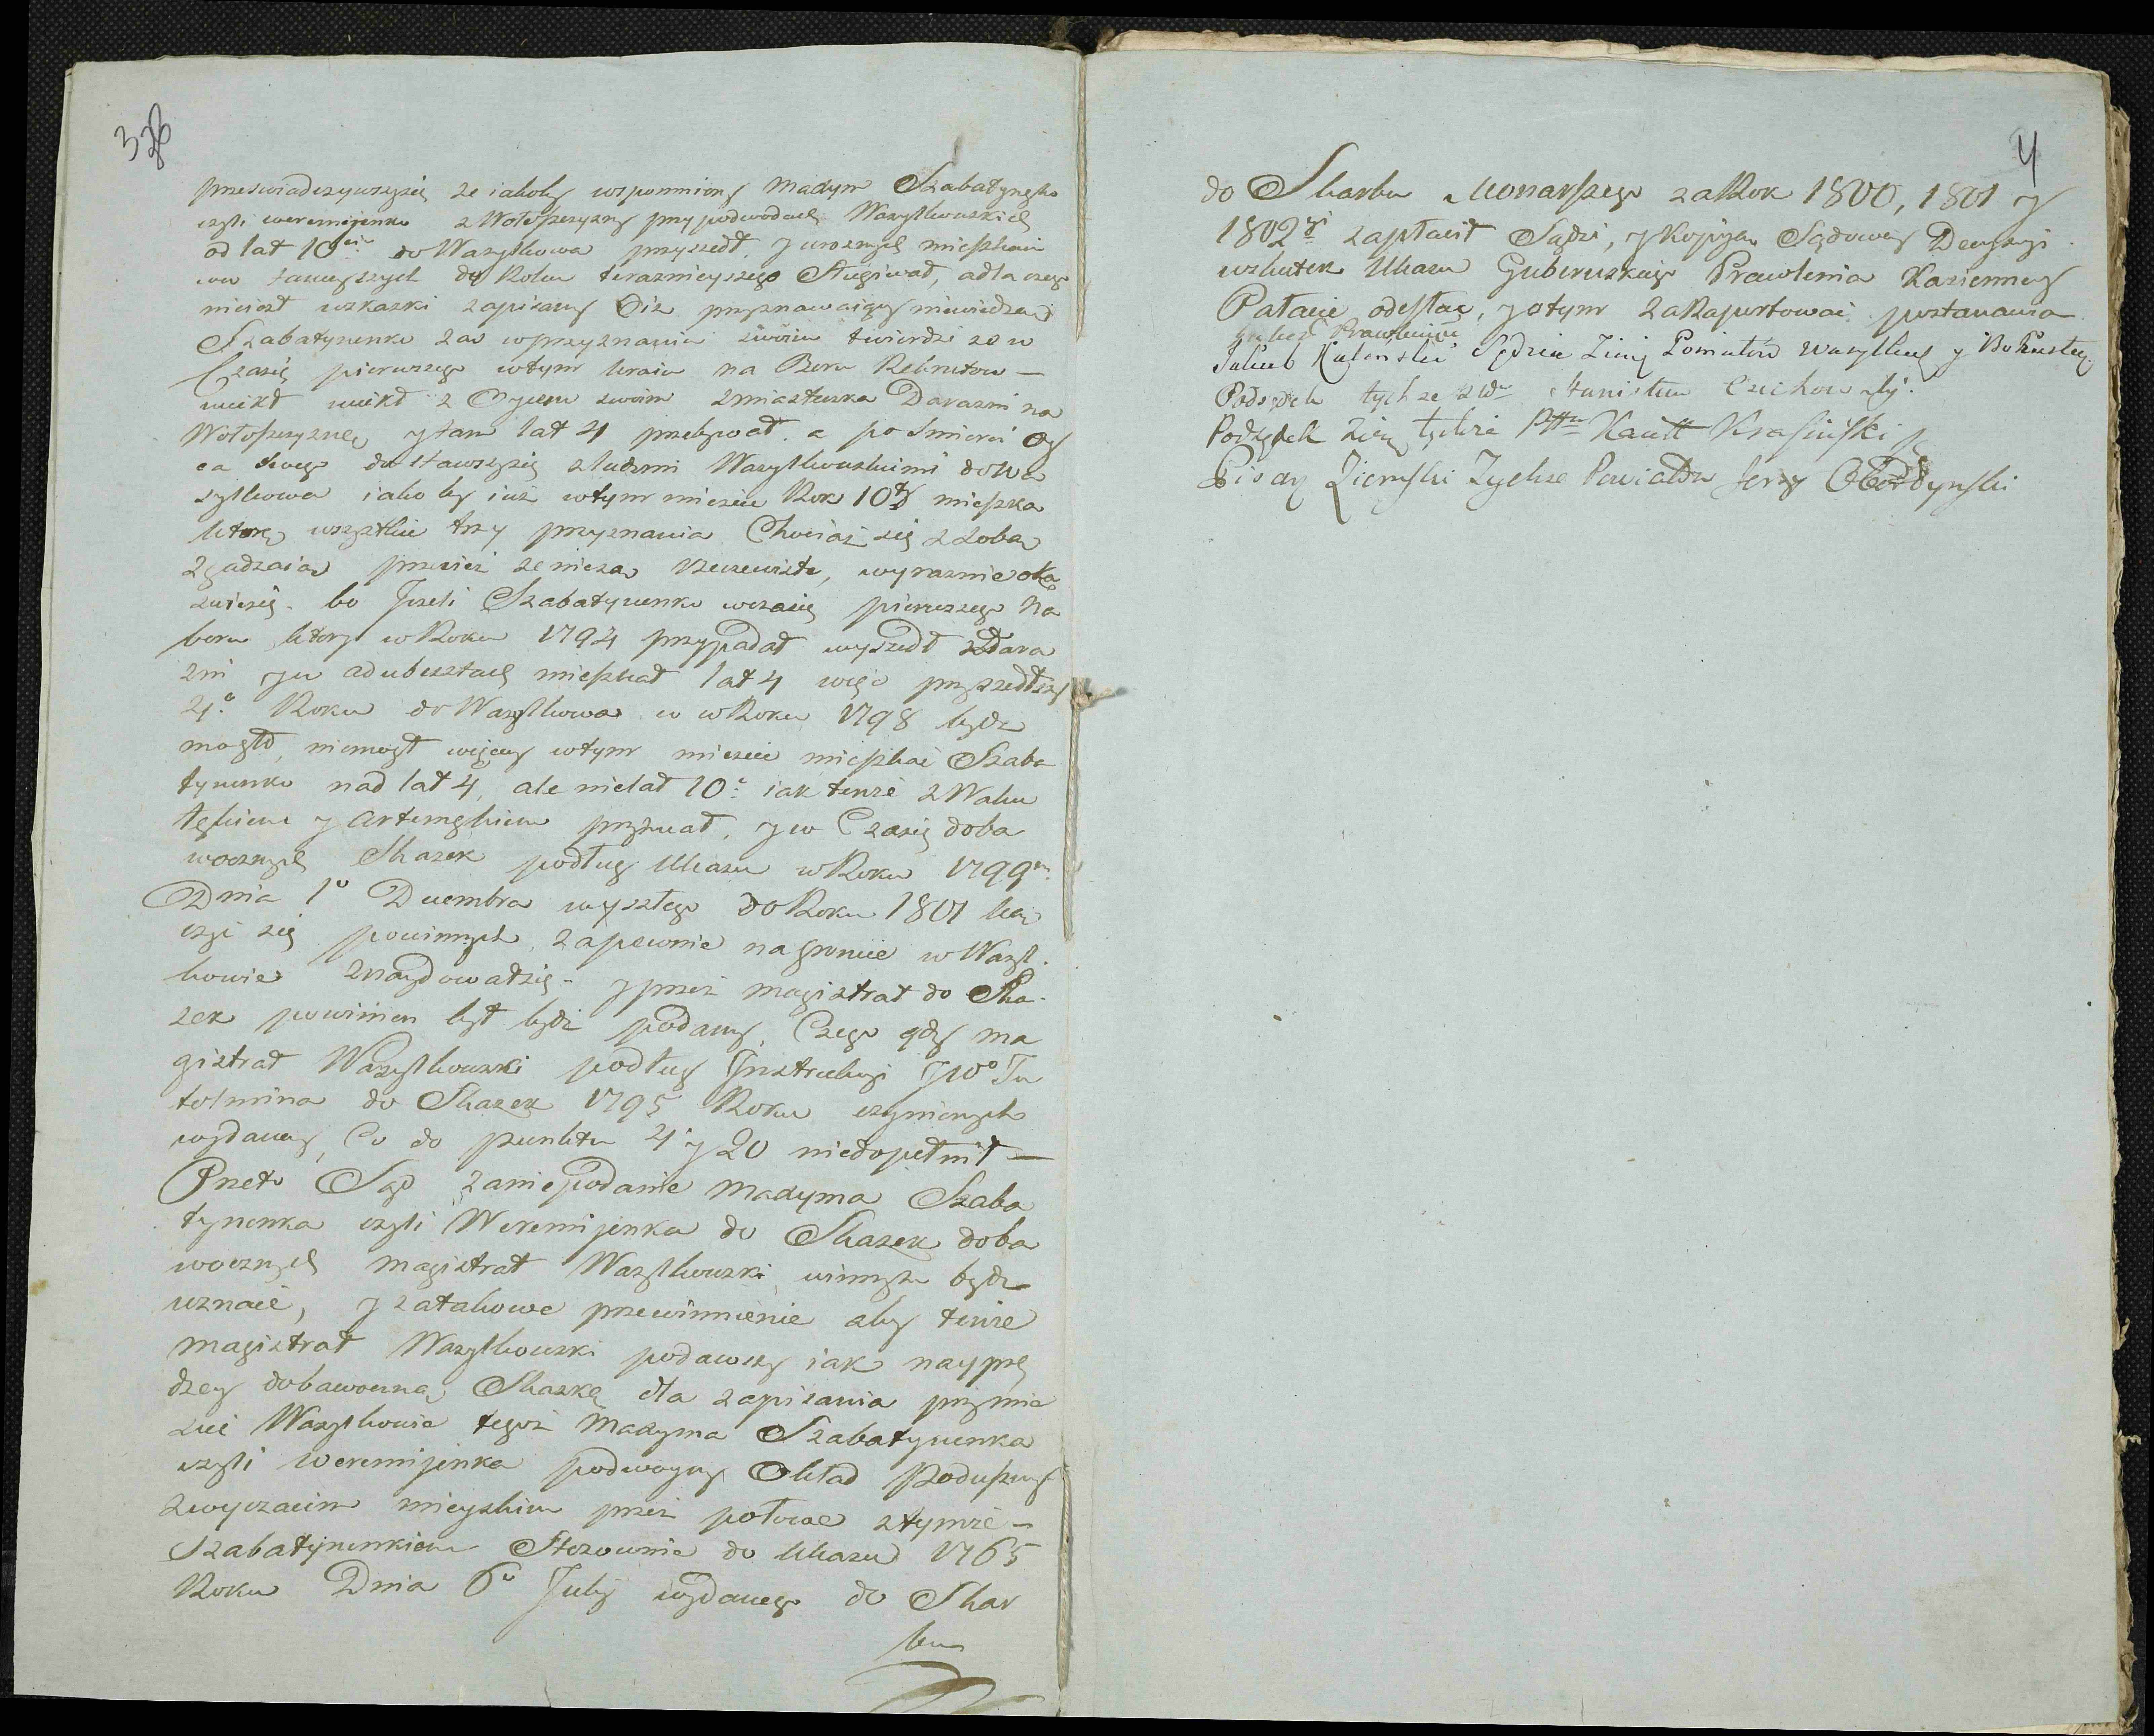 326
przeswiadczywszysię ze iakoby wspomniony Madym Szabatynenko
czyli weremijenko z Wołoszczyzny przy podwodach Wasylkowskich
od lat 10ciu do Wasylkowa przyszedł, y uroznych mieszkan
ców tameyszych do Roku teraznieyszego służiwał, a dla czego
niciest wskazki zapisany Dis przyznawaiący niewiedzą
Szabatynenko zas wprzyznaniu swoim twierdzi ze w
Czasie pierwszego wtym kraiu na Boru Rekrutow —
uciekł z Oycem swoim zmiasteczka Darazni na
Wołoszczyznę, y tam lat 4 przebywał, a po smierci Oy
ca swego dostawszysię zludzmi Wasylkowskimi do Wa
sylkowa iakoby iuż wtym miescie Rok 10ty mieszka
ktore wszystkie trzy przyznania Chociaz się z sobą
zgadzaią przeciez ze niesą rzeczewiste, wyraznie oka
zuiesię. bo Jezeli Szabatynenko wczasie pierwszego Na
boru ktory w Roku 1794 przypadał wyszedł z Dara
zni y w adubesztach mieszkał lat 4 więc przyszedłszy
4o Roku do Wasylkowa w w Roku 1798 bydz
mogł, niemogł więcey wtym miescie mieszkać Szaba
tynenko nad lat 4, ale nielat 10c iak tenże z Waku
łęnkiem y Artemęnkiem przyznał, y w Czasie doba
wocznych Skazek podług Ukazu w Roku 1799m
Dnia 1o Decembra wyszłego do Roku 1801 koń
czyć się powinnych, zapewnie na groncie w Wasyl
kowie znaydowałsię - y przez magistrat do Ska-
zek powinien był bydz podany, Czego gdy ma
gistrat Wasylkowski podług Jnstrukcyi JWo Tu
tolmina do Skazek 1795 Roku czynionych
wydaney, Co do punktu 4 y 20 niedopełnił —
Przeto Sąd za niepodanie Madyma Szaba
tynenka czyli Weremijenka do Skazek doba
wocznych magistrat Wasylkowski winnym bydz
uznaie, y zatakowe przewinnienie aby tenże
magistrat Wasylkowski podawszy iak nayprę
dzey dobawoczną Skazkę dla zapisania przy mie
scie Wasylkowie tegoż Madyma Szabatynenka
czyli Weremijenka podwoyny Okład Poduszny
zwyczaiem mieyskim przez połowę ztymże —
Szabatynenkiem Stosownie do Ukazu 1765
Roku Dnia 6o July wydanego do Skar
bu
4
do Skarbu Monarszego za Rok 1800, 1801 y
1802gi zapłacił Sądzi, y Kopiją Sądowey Decyzyi
wskutek Ukazu Guberuskiego Prawlenia Kazienney
Pałacie odesłac, y otym zaRaportowac postanawia
Prawleniu
Jakub Sędzia Ziem Powiatow Wasylkow y Bohusław
Podsędek tychze Stanisław Czechowski
Podsędek Ziem tychże Ptłu Krasiński
Pisarz Ziemski Tychże Powiatów Jerzy Obordynski